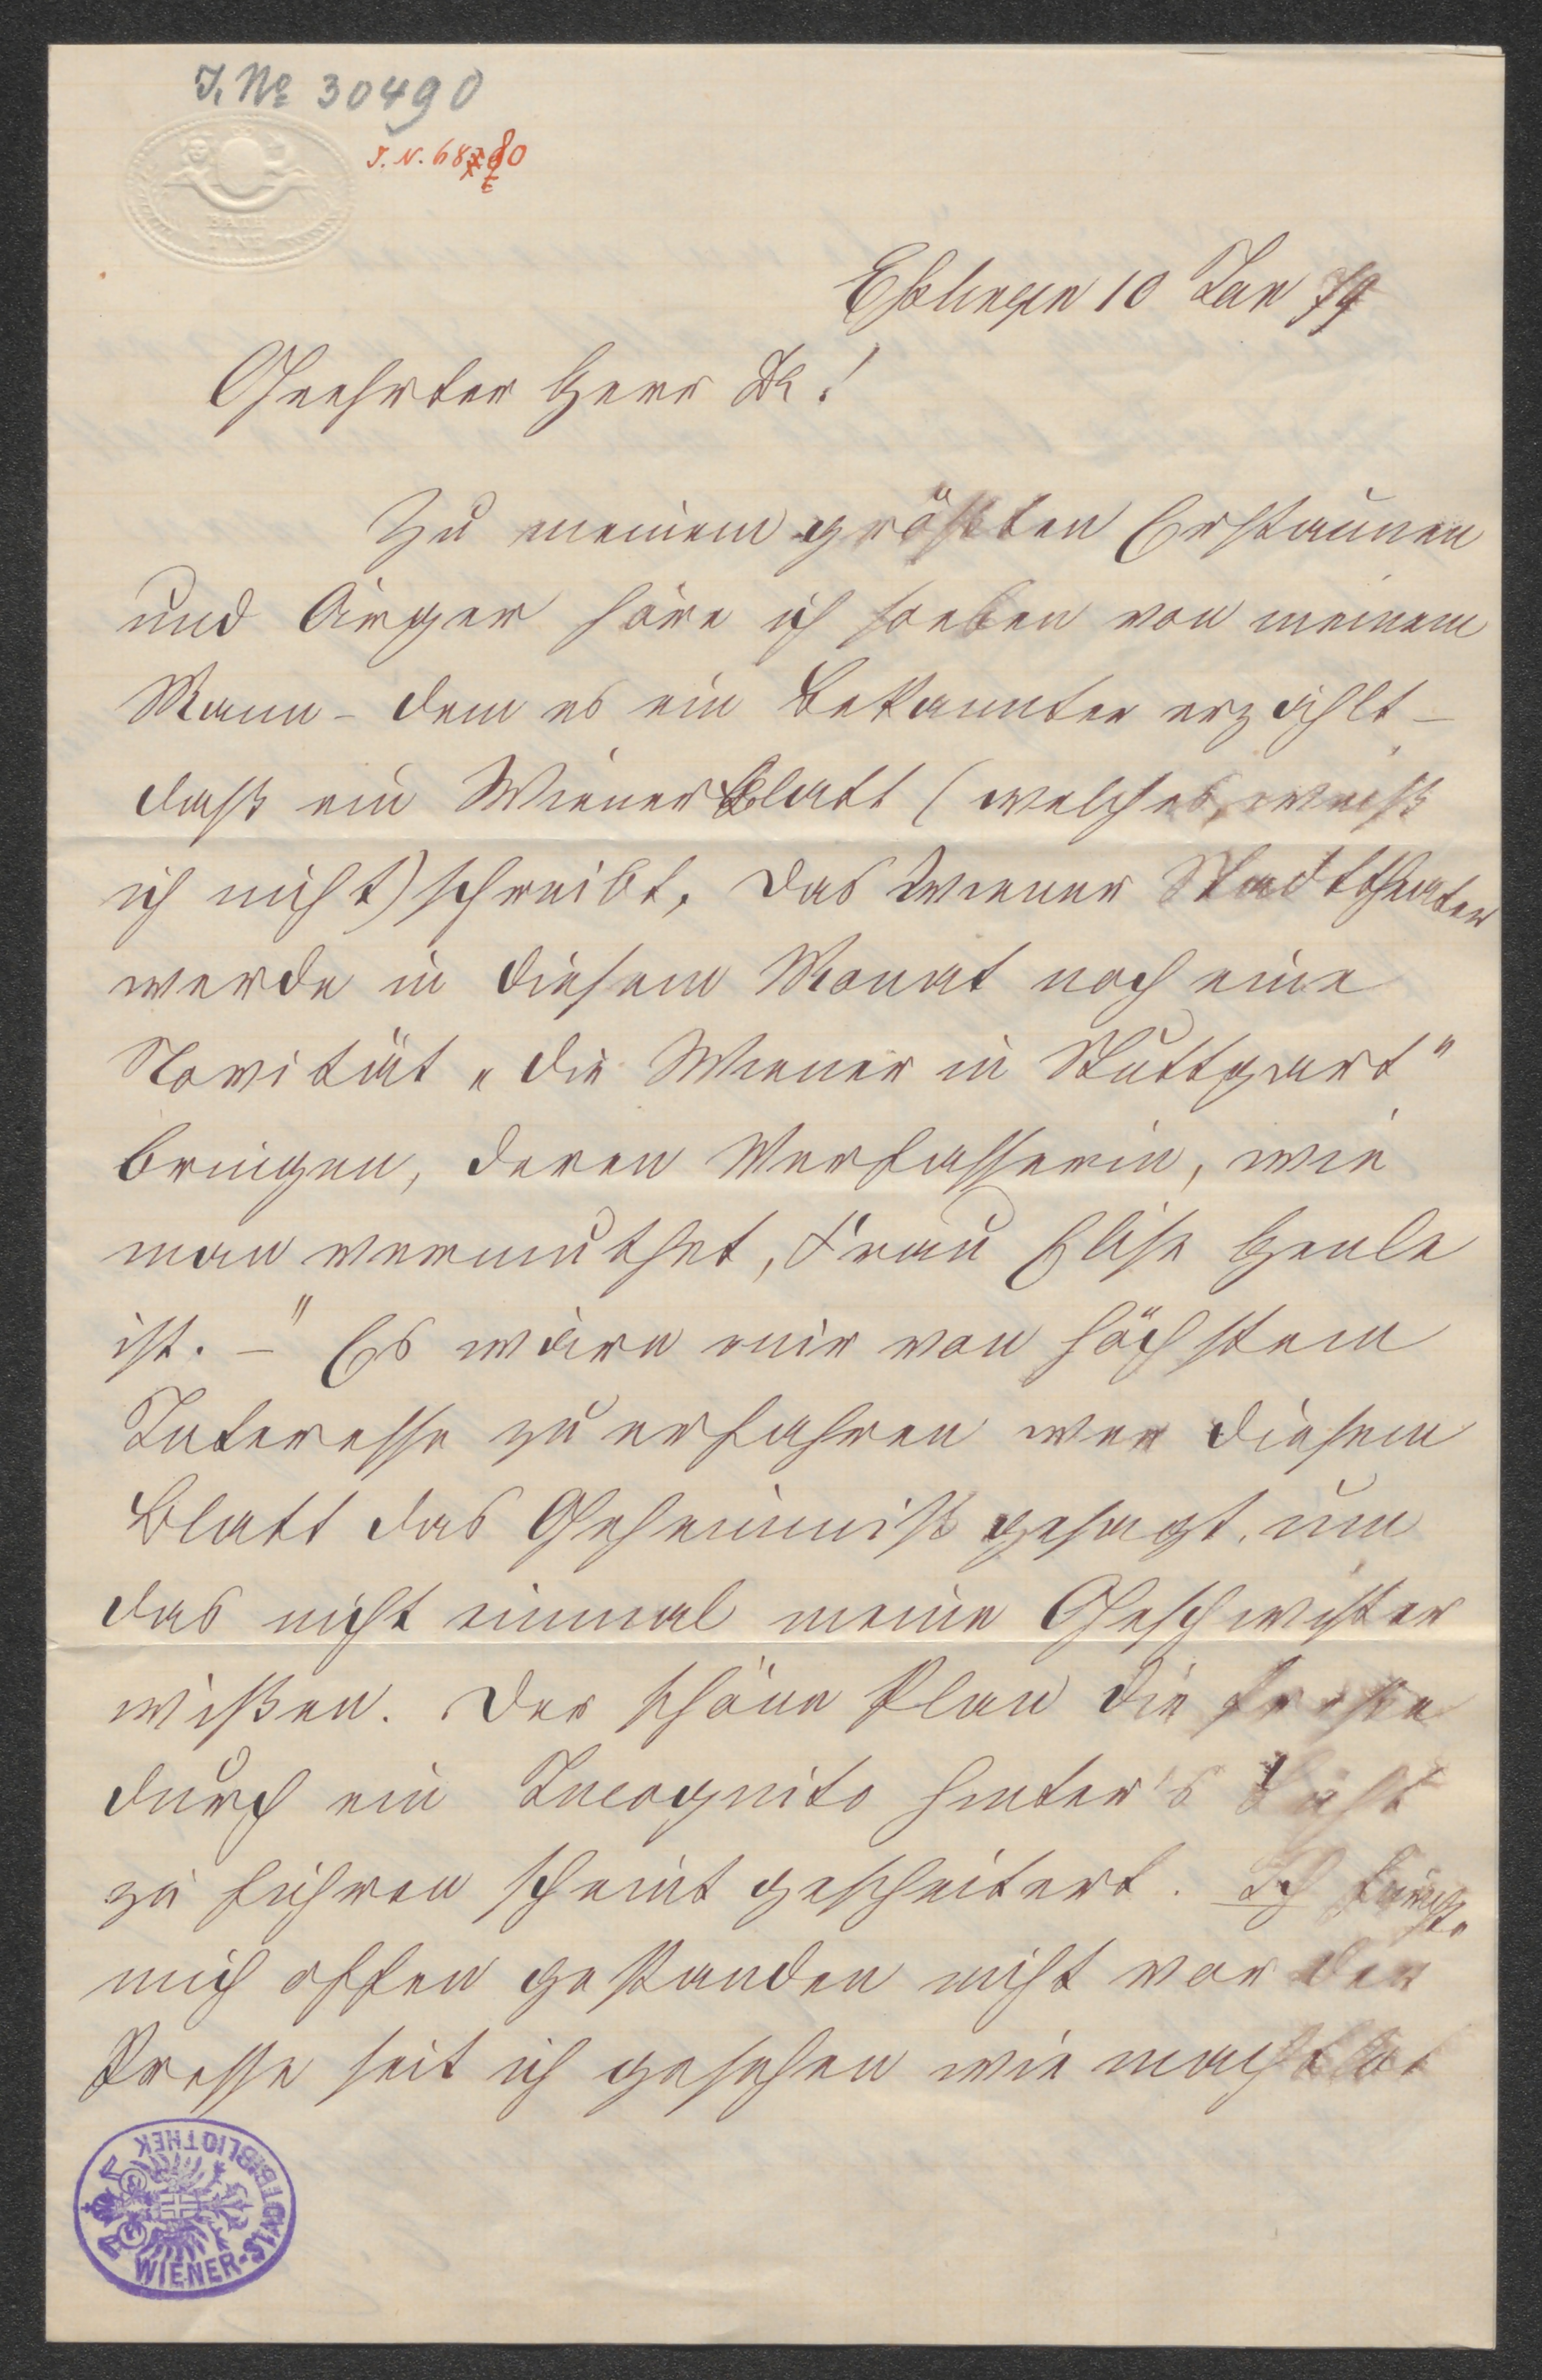 J. No 30490
J. N. 68780
BATH
Eßlingen 10 Jan 79
Geehrter Herr R!
Zu meinem größten Erstaunen
und Ärger höre ich soeben von meinem
Mann – dem es ein Bekannter erzählt –
daß ein Wiener Blatt (welches, weiß
ich nicht) schreibt, das Wiener Stadttheater
werde in diesem Monat noch eine
Novität „die Wiener in Stuttgart"
bringen, deren Verfasserin, wie
man vermuthet, Frau Elise Henle
ist. –" Es wäre mir von höchstem
Interesse zu erfahren wer diesem
Blatt das Geheimniß gesagt, um
das nicht einmal meine Geschwister
wißen. Der schöne Plan die Preße
durch ein Incognito hinter's Licht
zu führen scheint gescheitert. Ich fürchte
mich offen gestanden nicht vor der
Presse seit ich gesehen wie machtlos
WIENER-STADTBIBLIOTHEK